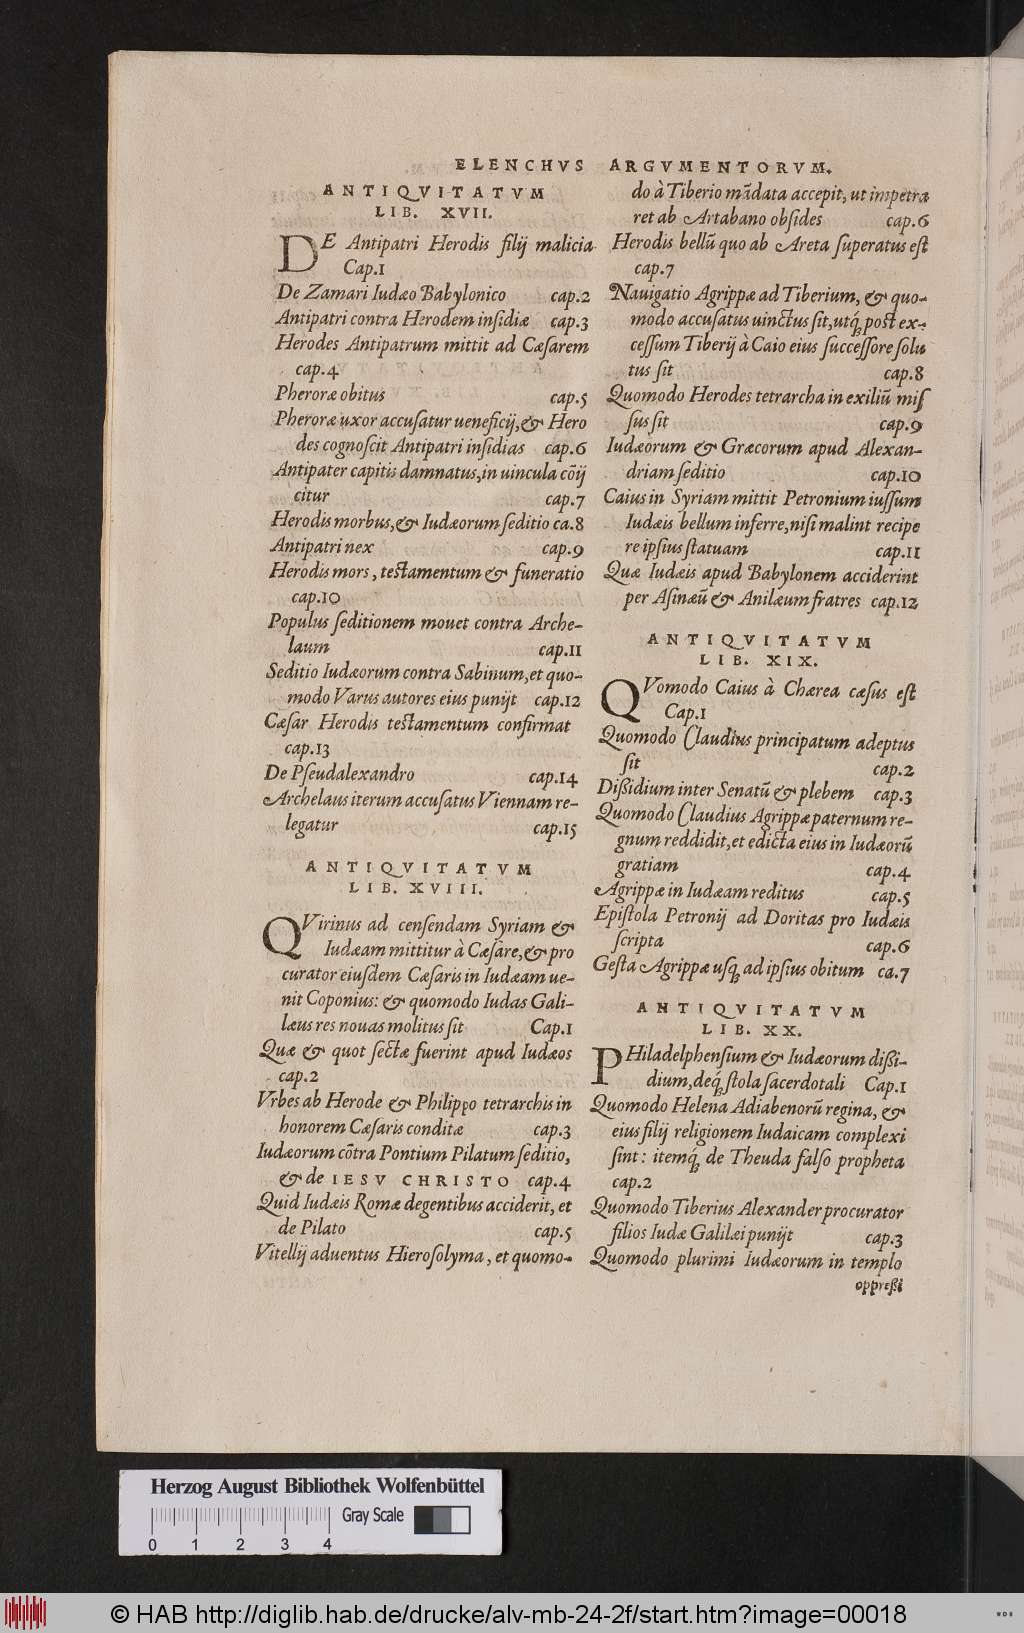 ELENCHVS ARGVMENTORVM.
ANTIQVITATVM
LIB. XVII.
DE Antipatri Herodis filij malicia
Cap.1
De Zamari Iudæo Babylonico cap.2
Antipatri contra Herodem insidiæ cap.3
Herodes Antipatrum mittit ad Cæsarem
cap.4
Pheroræ obitus cap.5
Pheroræ uxor accusatur ueneficij, & Hero
des cognoscit Antipatri insidias cap.6
Antipater capitis damnatus, in uincula cōij
citur cap.7
Herodis morbus, & Iudæorum seditio ca.8
Antipatri nex cap.9
Herodis mors, testamentum & funeratio
cap.10
Populus seditionem mouet contra Arche-
laum cap.11
Seditio Iudæorum contra Sabinum, et quo-
modo Varus autores eius punijt cap.12
Cæsar Herodis testamentum confirmat
cap.13
De Pseudalexandro cap.14
Archelaus iterum accusatus Viennam re-
legatur cap.15
ANTIQVITATVM
LIB. XVIII.
QVirinus ad censendam Syriam &
Iudæam mittitur à Cæsare, & pro
curator eiusdem Cæsaris in Iudæam ue-
nit Coponius: & quomodo Iudas Gali-
læus res nouas molitus sit Cap.1
Quæ & quot sectæ fuerint apud Iudæos
cap.2
Vrbes ab Herode & Philippo tetrarchis in
honorem Cæsaris conditæ cap.3
Iudæorum cōtra Pontium Pilatum seditio,
& de IESV CHRISTO cap.4
Quid Iudæis Romæ degentibus acciderit, et
de Pilato cap.5
Vitellij aduentus Hierosolyma, et quomo-
do à Tiberio mādata accepit, ut impetra
ret ab Artabano obsides cap.6
Herodis bellū quo ab Areta superatus est
cap.7
Nauigatio Agrippæ ad Tiberium, & quo-
modo accusatus uinctus sit, utq́; post ex-
cessum Tiberij à Caio eius successore solu
tus sit cap.8
Quomodo Herodes tetrarcha in exiliū mis
sus sit cap.9
Iudæorum & Græcorum apud Alexan-
driam seditio cap.10
Caius in Syriam mittit Petronium iussum
Iudæis bellum inferre, nisi malint recipe
re ipsius statuam cap.11
Quæ Iudæis apud Babylonem acciderint
per Asinæū & Anilæum fratres cap.12
ANTIQVITATVM
LIB. XIX.
QVomodo Caius à Chærea cæsus est
Cap.1
Quomodo Claudius principatum adeptus
sit cap.2
Dißidium inter Senatū & plebem cap.3
Quomodo Claudius Agrippæ paternum re-
gnum reddidit, et edicta eius in Iudæorū
gratiam cap.4
Agrippæ in Iudæam reditus cap.5
Epistola Petronij ad Doritas pro Iudæis
scripta cap.6
Gesta Agrippæ usq; ad ipsius obitum ca.7
ANTIQVITATVM
LIB. XX.
PHiladelphensium & Iudæorum dißi-
dium, deq́; stola sacerdotali Cap.1
Quomodo Helena Adiabenorū regina, &
eius filij religionem Iudaicam complexi
sint: itemq́; de Theuda falso propheta
cap.2
Quomodo Tiberius Alexander procurator
filios Iudæ Galilæi punijt cap.3
Quomodo plurimi Iudæorum in templo
oppreßi
Herzog August Bibliothek Wolfenbüttel
Gray Scale
0 1 2 3 4
© HAB http://diglib.hab.de/drucke/alv-mb-24-2f/start.htm?image=00018